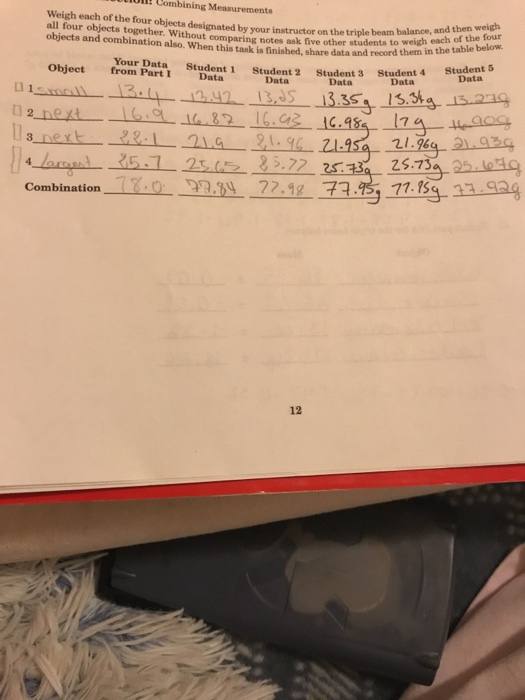 Combining Measurements
Weigh each of the four objects designated by your instructor on the triple beam balance, and then weigh
all four objects together. Without comparing notes ask five other students to weigh each of the four
objects and combination also. When this task is finished, share data and record them in the table below.
Object Your Data from Part I Student 1 Data Student 2 Data Student 3 Data Student 4 Data Student 5 Data
1 small 13.4 13.42 13.35 13.35g 13.36g 13.279
2 next 16.9 16.87 16.93 16.98g 17g 16.90g
3 next 22.1 21.9 21.96 21.95g 21.96g 21.93g
4 largest 25.7 25.65 25.77 25.73g 25.73g 25.67g
Combination 78.0 77.84 77.98 77.95g 77.95g 77.92g
12